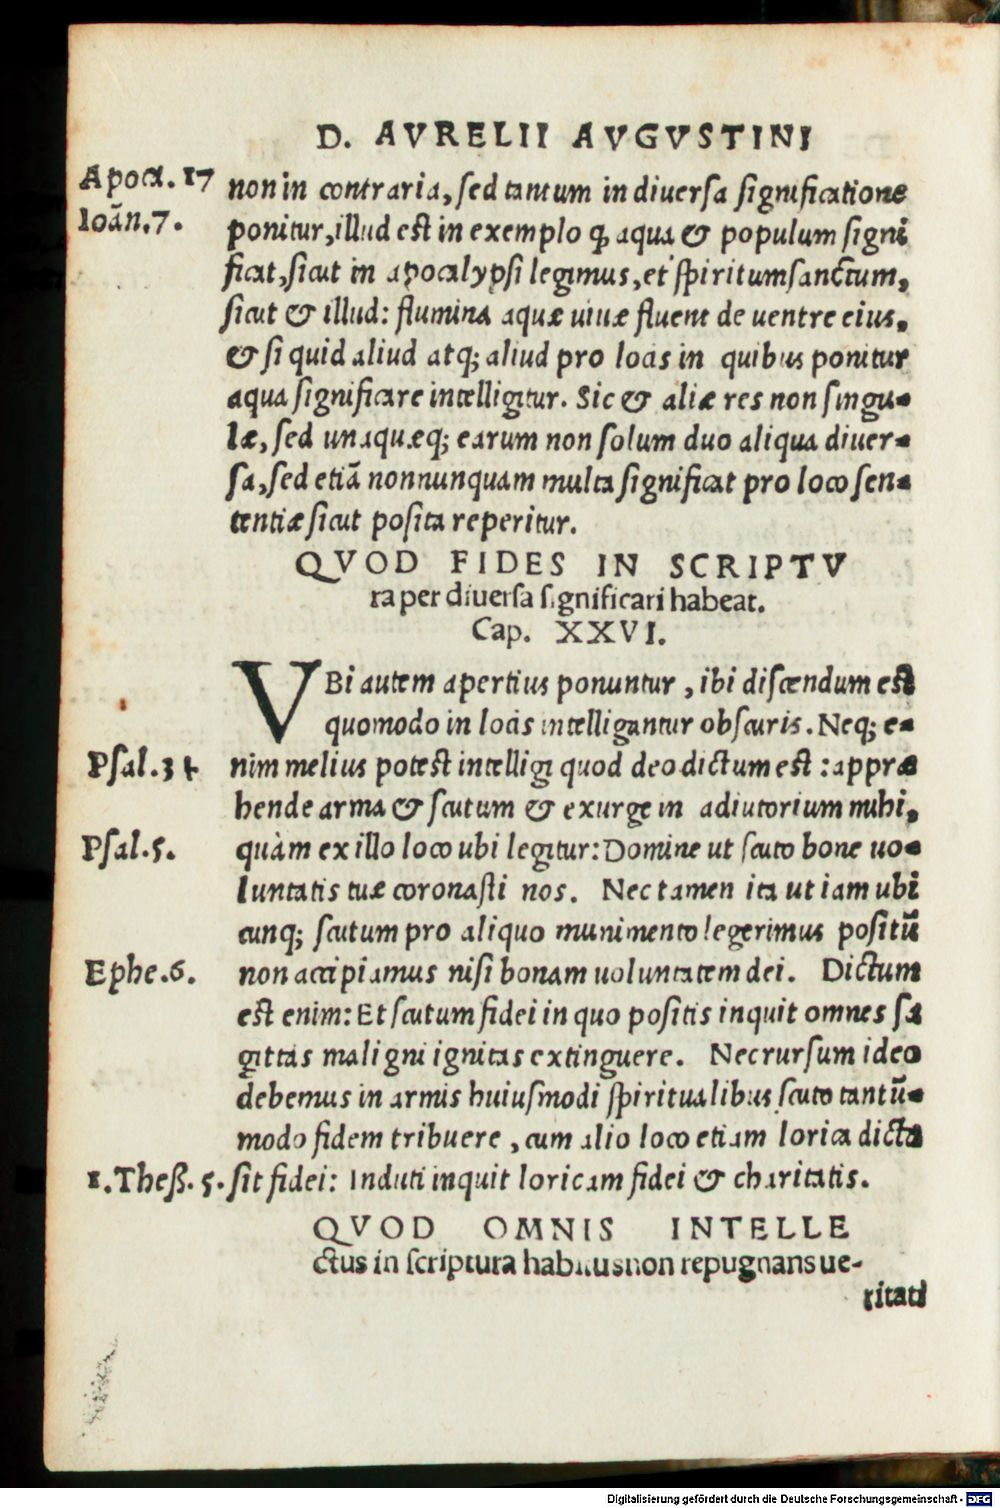 D. AVRELII AVGVSTINI
Apoca. 17
Ioãn. 7.
non in contraria, sed tantum in diuersa significatione
ponitur, illud est in exemplo ꝙ aqua & populum signi
ficat, sicut in apocalypsi legimus, et spiritum sanctum,
sicut & illud: flumina aquæ uiuæ fluent de uentre eius,
& si quid aliud atq; aliud pro locis in quibus ponitur
aqua significare intelligitur. Sic & aliæ res non singu-
læ, sed unaquæq; earum non solum duo aliqua diuer-
sa, sed etiã nonnunquam multa significat pro loco sen-
tentiæ sicut posita reperitur.
QVOD FIDES IN SCRIPTV
ra per diuersa significari habeat.
Cap. XXVI.
VBi autem apertius ponuntur, ibi discendum est
quomodo in locis intelligantur obscuris. Neq; e-
Psal. 34
nim melius potest intelligi quod deo dictum est: appræ
hende arma & scutum & exurge in adiutorium mihi,
Psal. 5.
quàm ex illo loco ubi legitur: Domine ut scuto bone uo-
luntatis tuæ coronasti nos. Nec tamen ita ut iam ubi
cunq; scutum pro aliquo munimento legerimus positũ
Ephe. 6.
non accipiamus nisi bonam uoluntatem dei. Dictum
est enim: Et scutum fidei in quo positis inquit omnes sa
gittas maligni ignitas extinguere. Nec rursum ideo
debemus in armis huiusmodi spiritualibus scuto tantũ-
modo fidem tribuere, cum alio loco etiam lorica dicta
1. Theß. 5. sit fidei: Induti inquit loricam fidei & charitatis.
QVOD OMNIS INTELLE
ctus in scriptura habitus non repugnans ue-
ritati
Digitalisierung gefördert durch die Deutsche Forschungsgemeinschaft - DFG